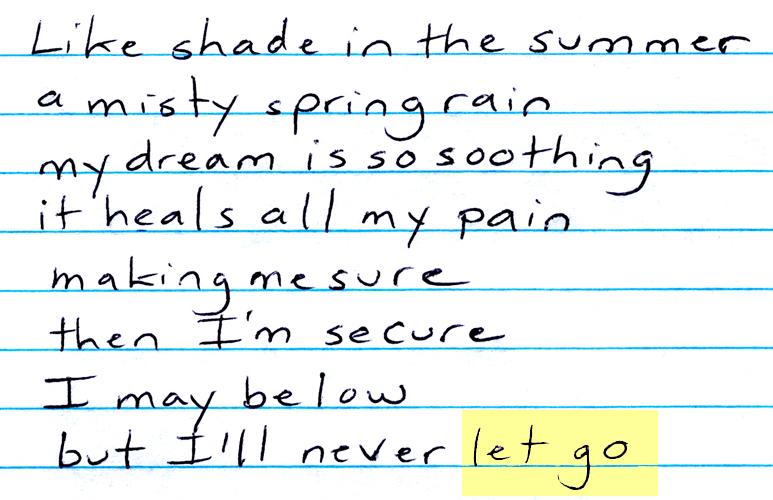 Like shade in the summer
a misty spring rain
my dream is so soothing
it heals all my pain
making me sure
then I'm secure
I may be low
but I'll never let go